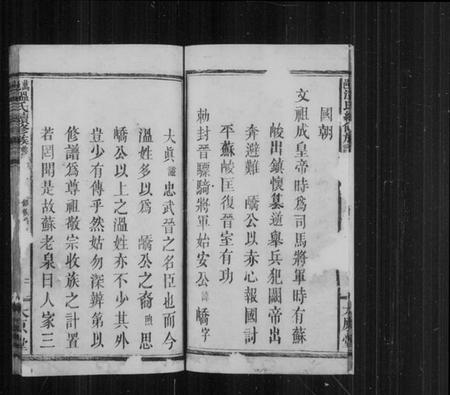 國朝
文祖成皇帝時為司馬將軍時有蘇
峻出鎮懷篡逆舉兵犯闕帝出
奔避難 嶠公以赤心報國討
平蘇峻匡復晉室有功
勅封晉驃騎將軍始安公諱嶠字
大眞諡忠武晉之名臣也而今
溫姓多以爲 嶠公之裔 思
嶠公以上之溫姓亦不少其外
豈少有傳乎然姑勿深辯第以
修譜爲尊祖敬宗收族之計置
若罔聞是故蘇老泉曰人家三
溫氏續修族譜